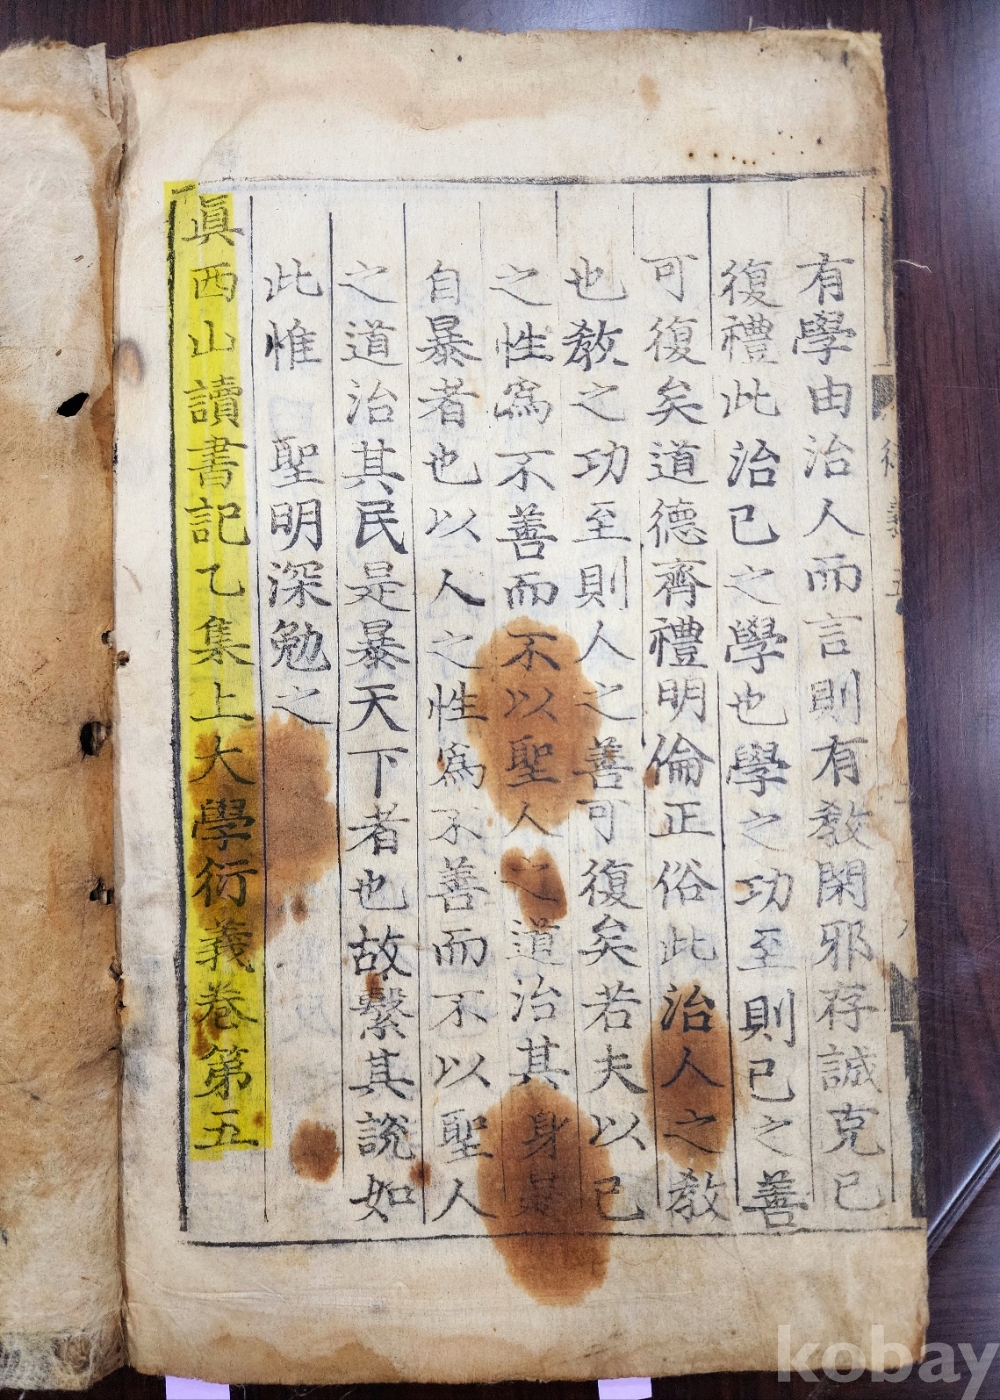 有學由治人而言則有敎閑邪存誠克已
復禮此治已之學也學之功至則已之善
可復矣道德齊禮明倫正俗此治人之敎
也敎之功至則人之善可復矣若夫以已
之性爲不善而不以聖人之道治其身是
自暴者也以人之性爲不善而不以聖人
之道治其民是暴天下者也故繫其說如
此惟 聖明深勉之
眞西山讀書記乙集上大學衍義卷第五
kobay